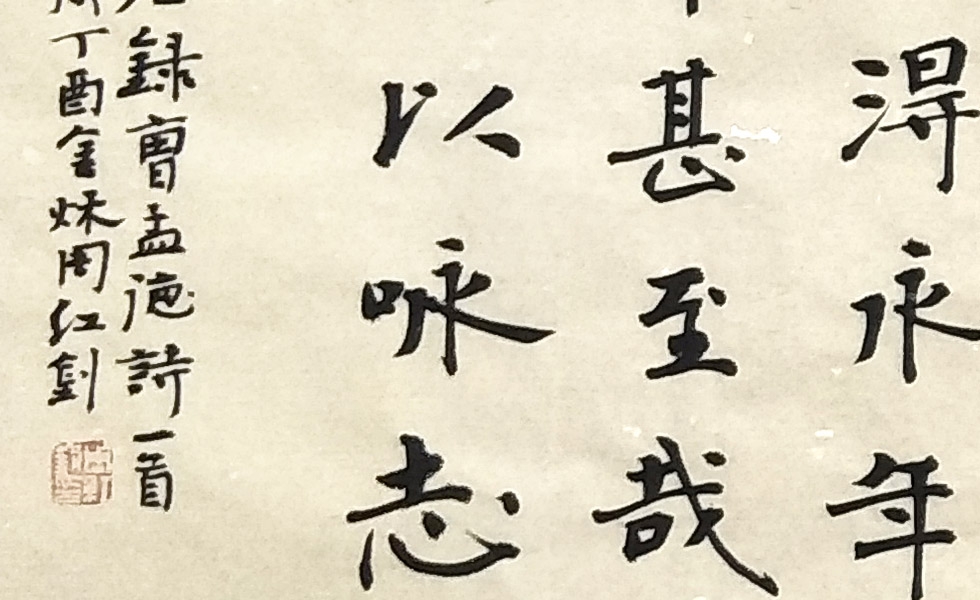 得永年
甚至哉
以咏志
録曹孟德詩一首
丁酉金秋周红剑